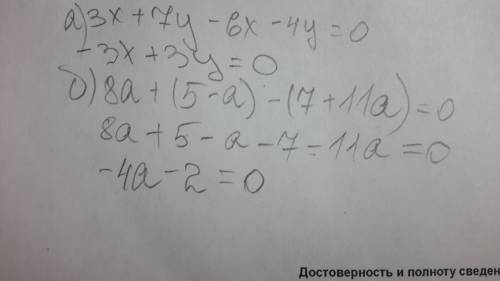 а) 3x + 7y - 6x - 4y = 0
-3x + 3y = 0
б) 8a + (5 - a) - (7 + 11a) = 0
8a + 5 - a - 7 - 11a = 0
-4a - 2 = 0
Достоверность и полноту сведен